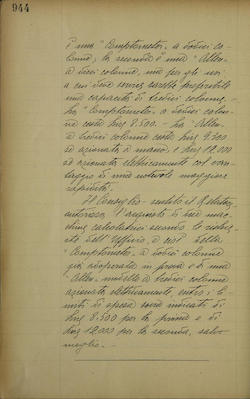 944
è una "Comptometer" a dodici co-
lonne; la seconda è una "Allen"
a dieci colonne, ma per gli usi
a cui deve servire sarebbe preferibile
una capacità di tredici colonne.
La "Comptometer" a dodici colon-
ne costa Lire 8.500 - La "Allen"
a tredici colonne costa Lire 9.500
se azionata a mano, e Lire 12.000
se azionata elettricamente col van-
taggio di una notevole maggiore
rapidità.
Il Consiglio - sentito il Relatore,
autorizza l'acquisto di due mac-
chine calcolatrici secondo le
dell'Ufficio, e cioè della
"Comptometer" a dodici colonne
già adoperata in prova e di una
"Allen" modello a tredici colonne
azionata elettricamente, entro i li-
miti di spesa sopra indicati di
Lire 8.500 per la prima e di
Lire 12.000 per la seconda, salvo
meglio.